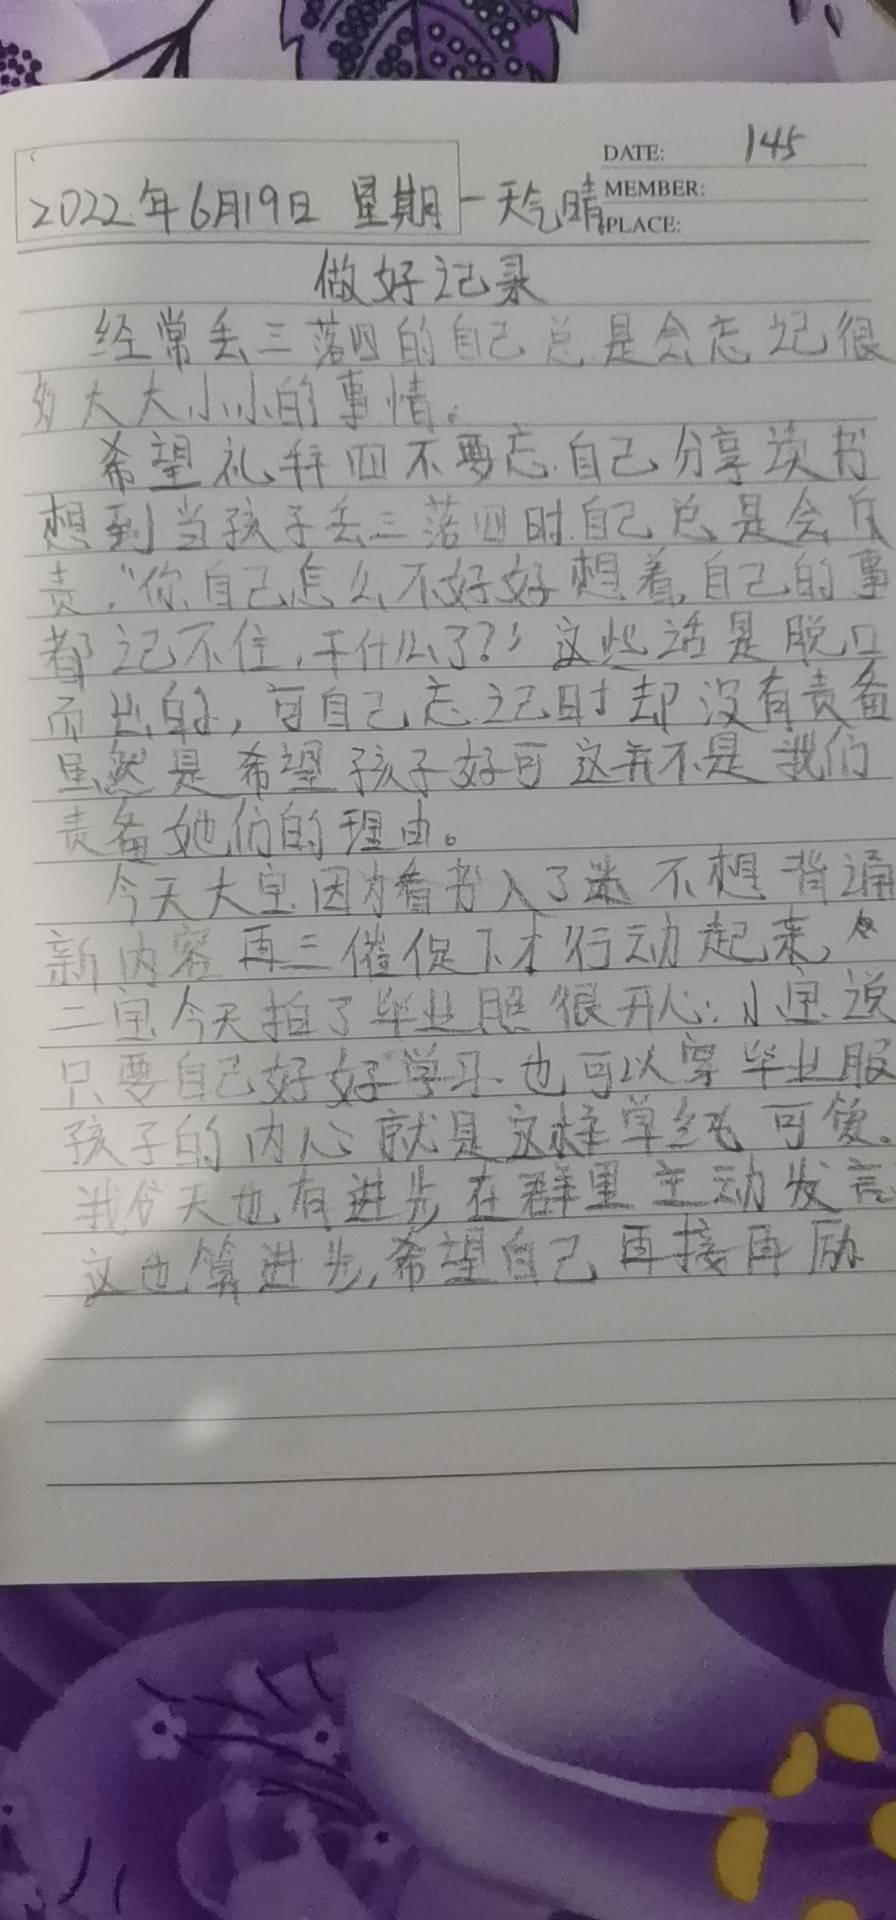 DATE: 145
MEMBER:
PLACE:
2022年6月19日 星期一 天气晴
做好记录
经常丢三落四的自己总是会忘记很
多大大小小的事情。
希望礼拜四不要忘自己分享读书
想到当孩子丢三落四时自己总是会斥
责,“你自己怎么不好好想着,自己的事
都记不住,干什么了?”这些话是脱口
而出的,可自己忘记时却没有责备
虽然是希望孩子好可这并不是我们
责备她们的理由。
今天大宝因为看书入了迷不想背诵
新内容再三催促下才行动起来,
二宝今天拍了毕业照很开心:小宝说
只要自己好好学习也可以穿毕业服
孩子的内心就是这样单纯可爱。
我今天也有进步在群里主动发言
这也算进步,希望自己再接再励